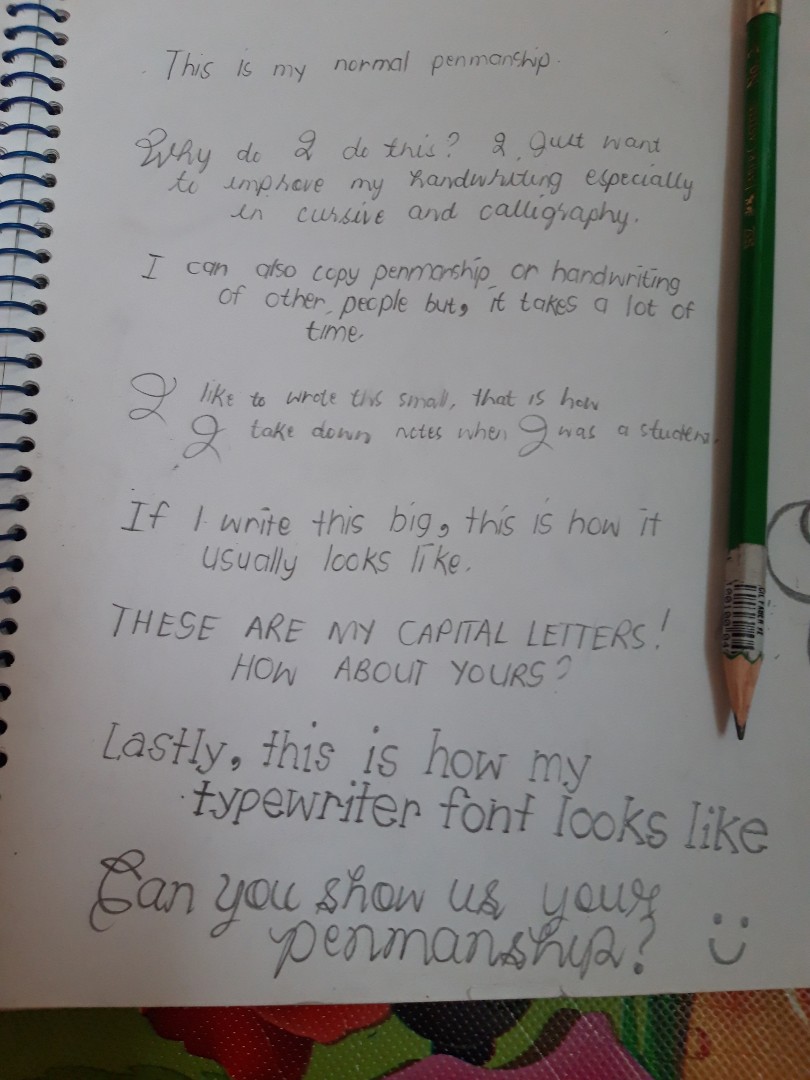 This is my normal penmanship.
Why do I do this? I just want
to improve my handwriting especially
in cursive and calligraphy.
I can also copy penmanship or handwriting
of other people but, it takes a lot of
time.
I like to wrote this small, that is how
I take down notes when I was a student.
If I write this big, this is how it
usually looks like.
THESE ARE MY CAPITAL LETTERS!
HOW ABOUT YOURS?
Lastly, this is how my
typewriter font looks like
Can you show us yours
penmanship? :)